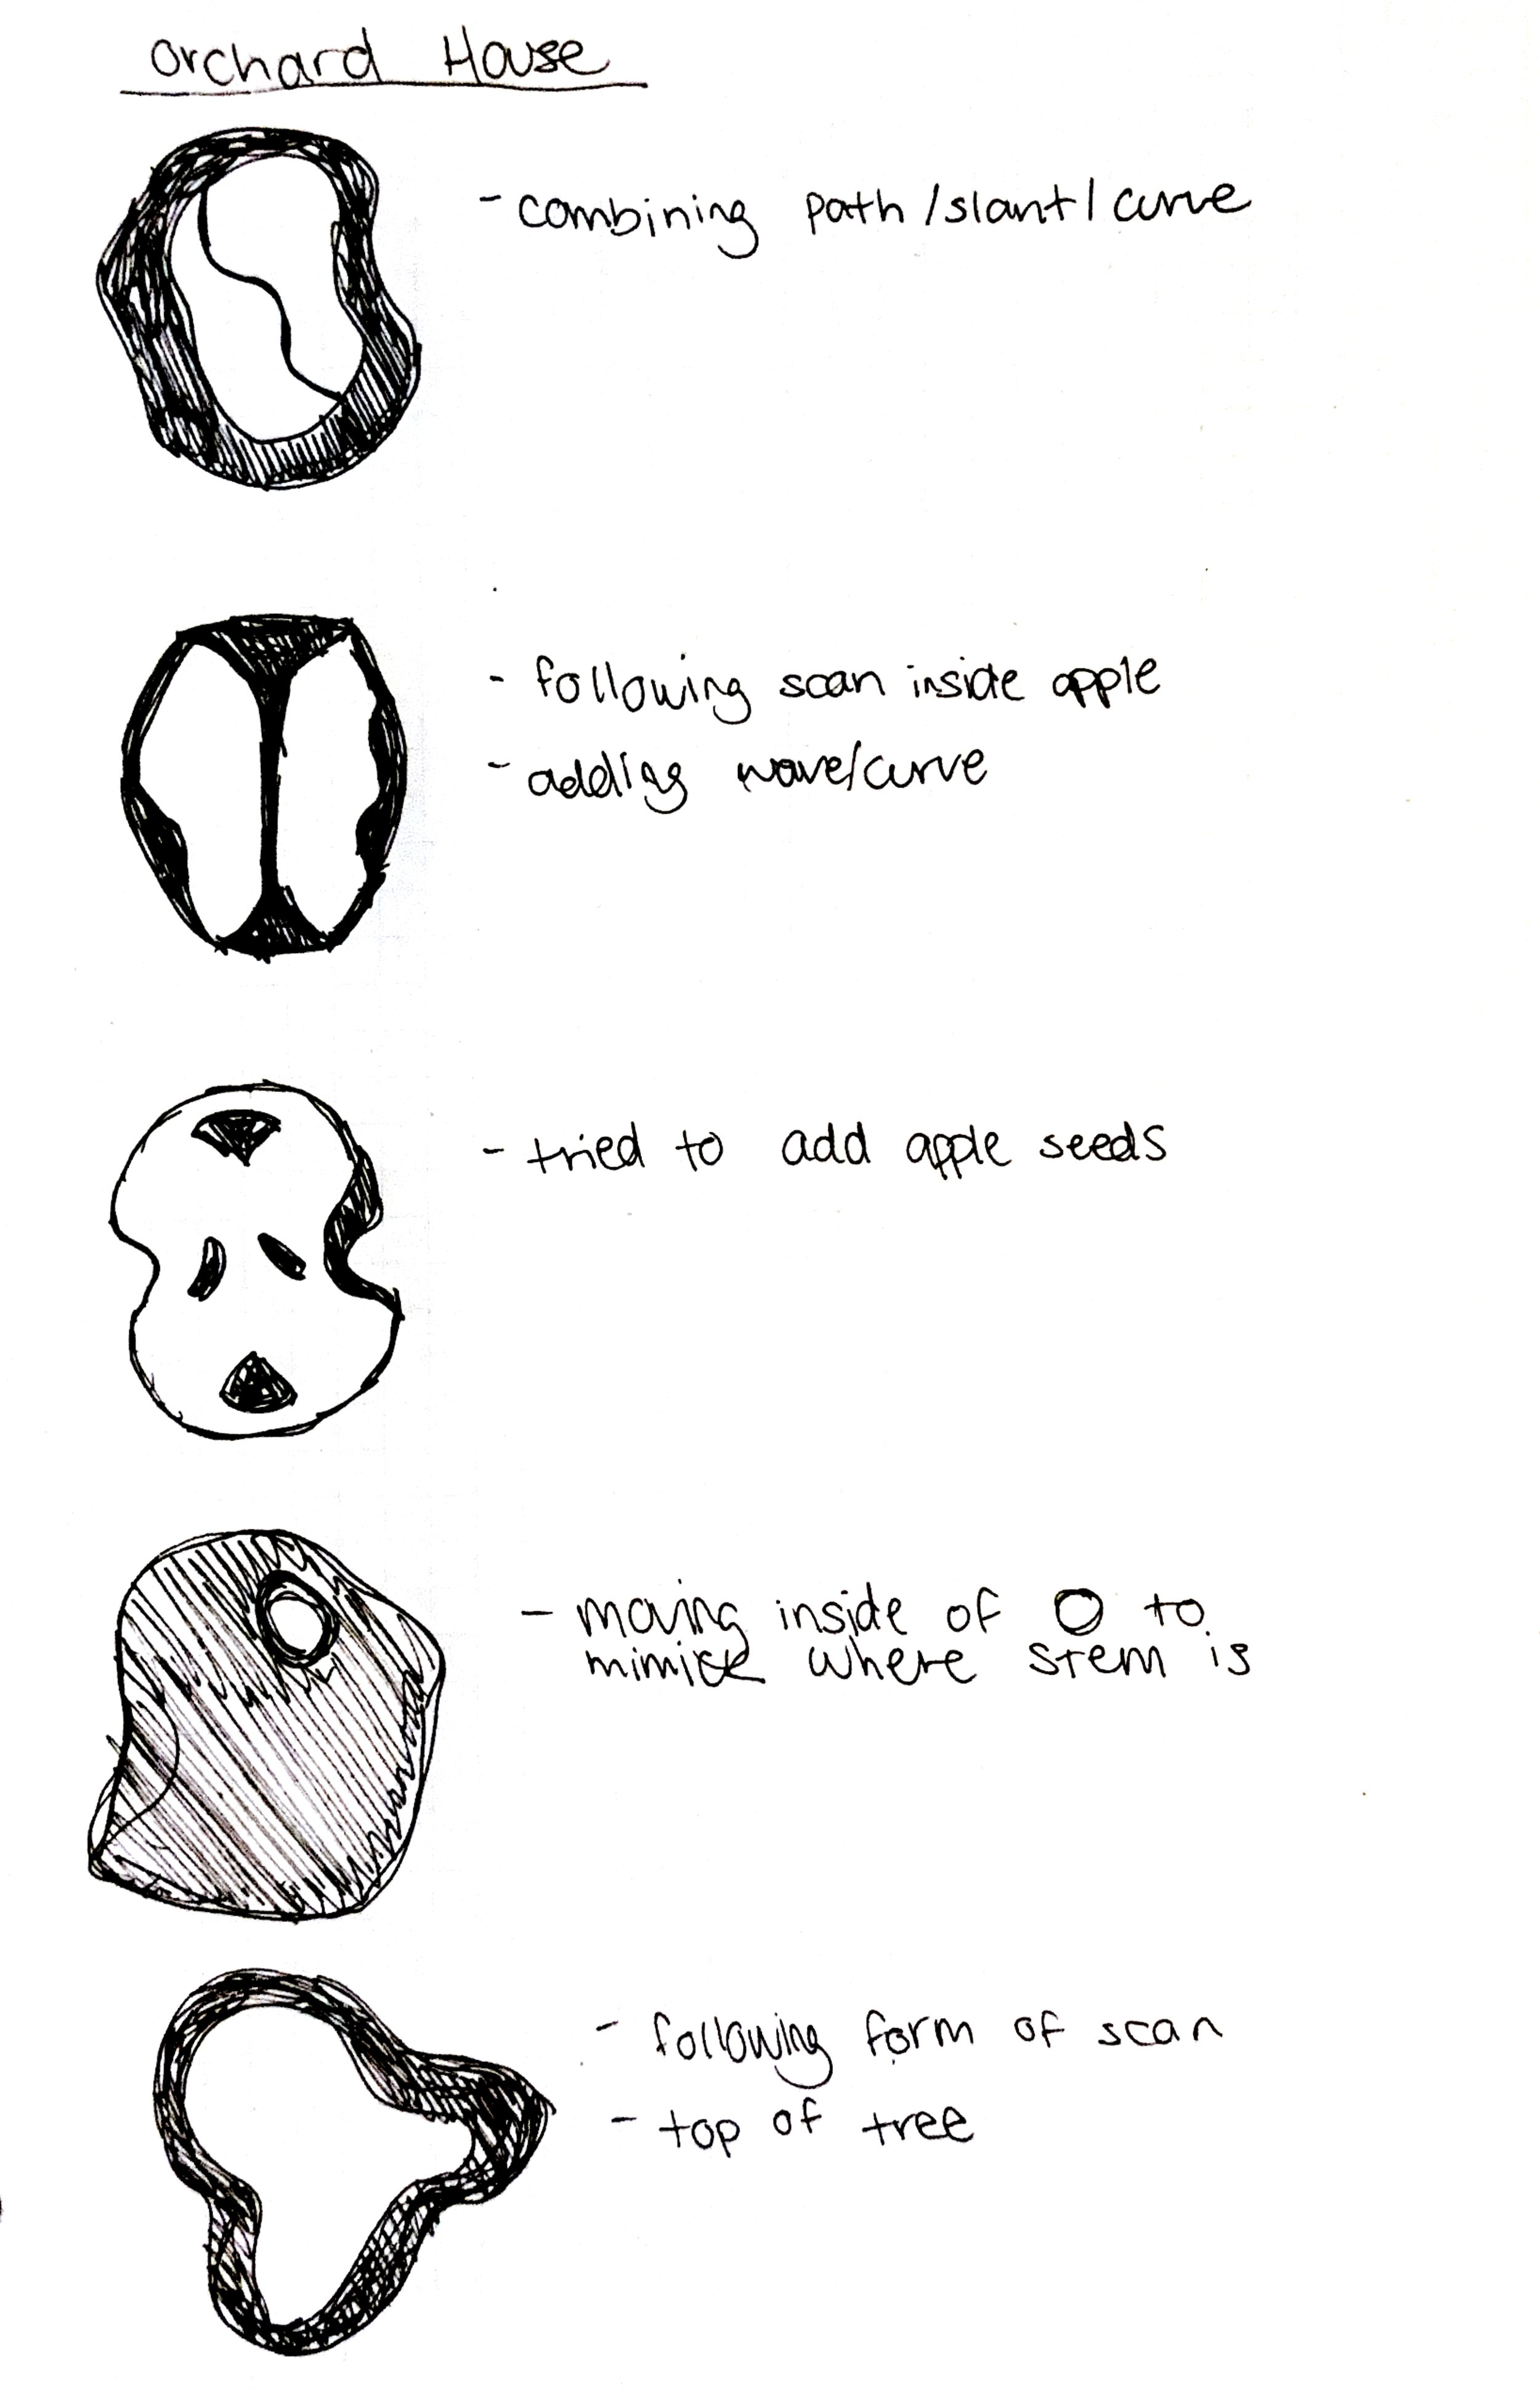 Orchard House
- combining path/slant/curve
- following scan inside apple
- adding wave/curve
- tried to add apple seeds
- moving inside of O to
mimick where stem is
- following form of scan
- top of tree